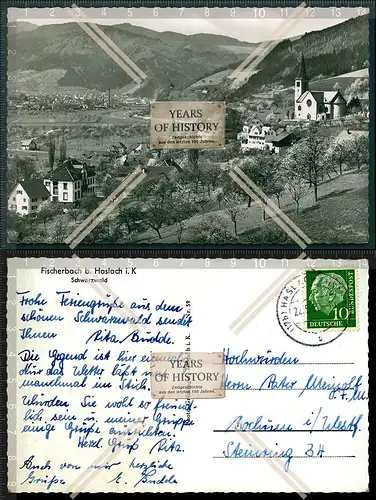 YEARS
OF HISTORY
Zeitgeschichte
aus den letzten 100 Jahren
Fischerbach b. Haslach i. K
Schwarzwald
Frohe Feriengrüße aus dem
schönen Schwarzwald sendet
Ihnen Rita Budde.
Die Gegend ist hier einmalig
nur das Wetter läßt uns
manchmal im Stich.
Würden Sie wohl so freund-
lich sein u. meiner Gruppe
einige Grüße ausrichten.
Herzl. Gruß Rita.
Auch von mir herzliche
Grüße E. Budde
YEARS
OF HISTORY
Zeitgeschichte
aus den letzten 100 Jahren
(17b) HASLA
b
10
DEUTSCHE
BUNDESPOST
Hochwürden
Herrn Pater
O.F.M.
Bochum i/Westf.
Steinring 34